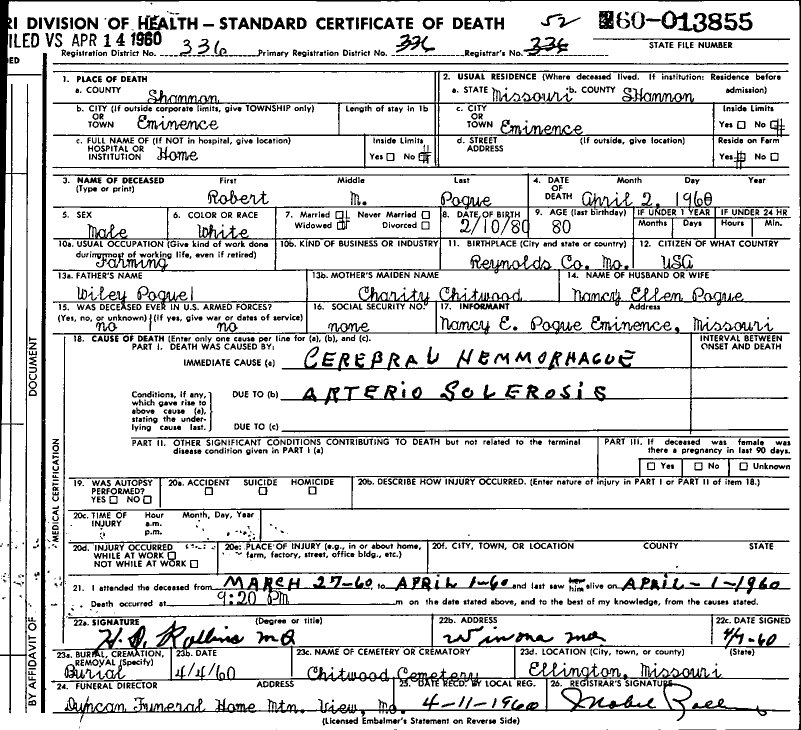 RI DIVISION OF HEALTH — STANDARD CERTIFICATE OF DEATH 52 60-013855
FILED VS APR 14 1960 Registration District No. 336 Primary Registration District No. 336 Registrar's No. 336 STATE FILE NUMBER
1. PLACE OF DEATH 2. USUAL RESIDENCE (Where deceased lived. If institution: Residence before admission)
a. COUNTY Shannon a. STATE Missouri b. COUNTY SHannon
b. CITY (If outside corporate limits, give TOWNSHIP only) OR TOWN Eminence Length of stay in 1b c. CITY OR TOWN Eminence Inside Limits Yes No
c. FULL NAME OF (If NOT in hospital, give location) HOSPITAL OR INSTITUTION Home Inside Limits Yes No d. STREET ADDRESS (If outside, give location) Reside on Farm Yes No
3. NAME OF DECEASED (Type or print) First Middle Last 4. DATE OF DEATH Month Day Year
Robert M. Pogue April 2, 1960
5. SEX 6. COLOR OR RACE 7. Married Never Married Widowed Divorced 8. DATE OF BIRTH 9. AGE (last birthday) IF UNDER 1 YEAR Months Days IF UNDER 24 HR Hours Min.
Male White 2/10/80 80
10a. USUAL OCCUPATION (Give kind of work done during most of working life, even if retired) 10b. KIND OF BUSINESS OR INDUSTRY 11. BIRTHPLACE (City and state or country) 12. CITIZEN OF WHAT COUNTRY
Farming Reynolds Co. Mo. USA
13a. FATHER'S NAME 13b. MOTHER'S MAIDEN NAME 14. NAME OF HUSBAND OR WIFE
Wiley Pogue Charity Chitwood Nancy Ellen Pogue
15. WAS DECEASED EVER IN U.S. ARMED FORCES? (Yes, no, or unknown) (If yes, give war or dates of service) 16. SOCIAL SECURITY NO. 17. INFORMANT Address
no no none Nancy E. Pogue Eminence, Missouri
18. CAUSE OF DEATH (Enter only one cause per line for (a), (b), and (c). INTERVAL BETWEEN ONSET AND DEATH
PART I. DEATH WAS CAUSED BY:
IMMEDIATE CAUSE (a) CEREBRAL HEMMORHAGUE
Conditions, if any, which gave rise to above cause (a), stating the underlying cause last.
DUE TO (b) ARTERIO SCLEROSIS
DUE TO (c)
PART II. OTHER SIGNIFICANT CONDITIONS CONTRIBUTING TO DEATH but not related to the terminal disease condition given in PART I (a) PART III. If deceased was female was there a pregnancy in last 90 days.
Yes No Unknown
19. WAS AUTOPSY PERFORMED? YES NO 20a. ACCIDENT SUICIDE HOMICIDE 20b. DESCRIBE HOW INJURY OCCURRED. (Enter nature of injury in PART I or PART II of item 18.)
20c. TIME OF INJURY Hour a.m. p.m. Month, Day, Year
20d. INJURY OCCURRED WHILE AT WORK NOT WHILE AT WORK 20e. PLACE OF INJURY (e.g., in or about home, farm, factory, street, office bldg., etc.) 20f. CITY, TOWN, OR LOCATION COUNTY STATE
21. I attended the deceased from MARCH 27-60, to APRIL 1-60 and last saw him alive on APRIL-1-1960
Death occurred at 9:20 PM m on the date stated above, and to the best of my knowledge, from the causes stated.
22a. SIGNATURE (Degree or title) 22b. ADDRESS 22c. DATE SIGNED
H. D. Rollins MD Winona Mo 4/9-60
23a. BURIAL, CREMATION, REMOVAL (Specify) 23b. DATE 23c. NAME OF CEMETERY OR CREMATORY 23d. LOCATION (City, town, or county) (State)
Burial 4/4/60 Chitwood Cemetery Ellington, Missouri
24. FUNERAL DIRECTOR ADDRESS 25. DATE RECD. BY LOCAL REG. 26. REGISTRAR'S SIGNATURE
Duncan Funeral Home Mtn. View, Mo. 4-11-1960 Mabel
(Licensed Embalmer's Statement on Reverse Side)
DOCUMENT
MEDICAL CERTIFICATION
BY AFFIDAVIT OF